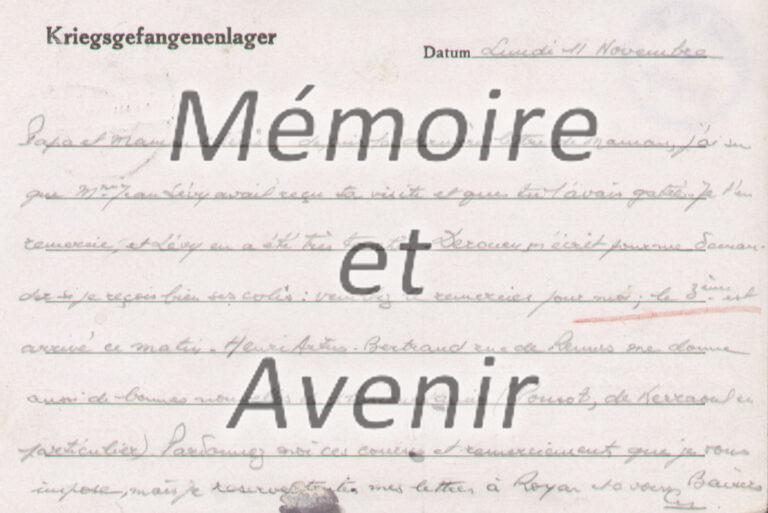 Kriegsgefangenenlager
Datum Lundi 11 Novembre
Mémoire
Papa et Maman, dernière lettre de Maman, j'ai su
que Mme Jean Lévy avait reçu ta visite et que tu l'avais gatée. Je t'en
remercie, et Lévy en a été très Derouen m'écrit pour me deman-
et
der si je reçois bien ses colis : remercier pour moi ; le 3ème est
arrivé ce matin. Henri Artus. Bertrand rue de Rennes me donne
Avenir
aussi de bonnes (Ponsot, de Kerraoul en
particulier) Pardonnez moi ces et remerciement que je vous
impose, mais je mes lettres à Royan et à vous. Baisers